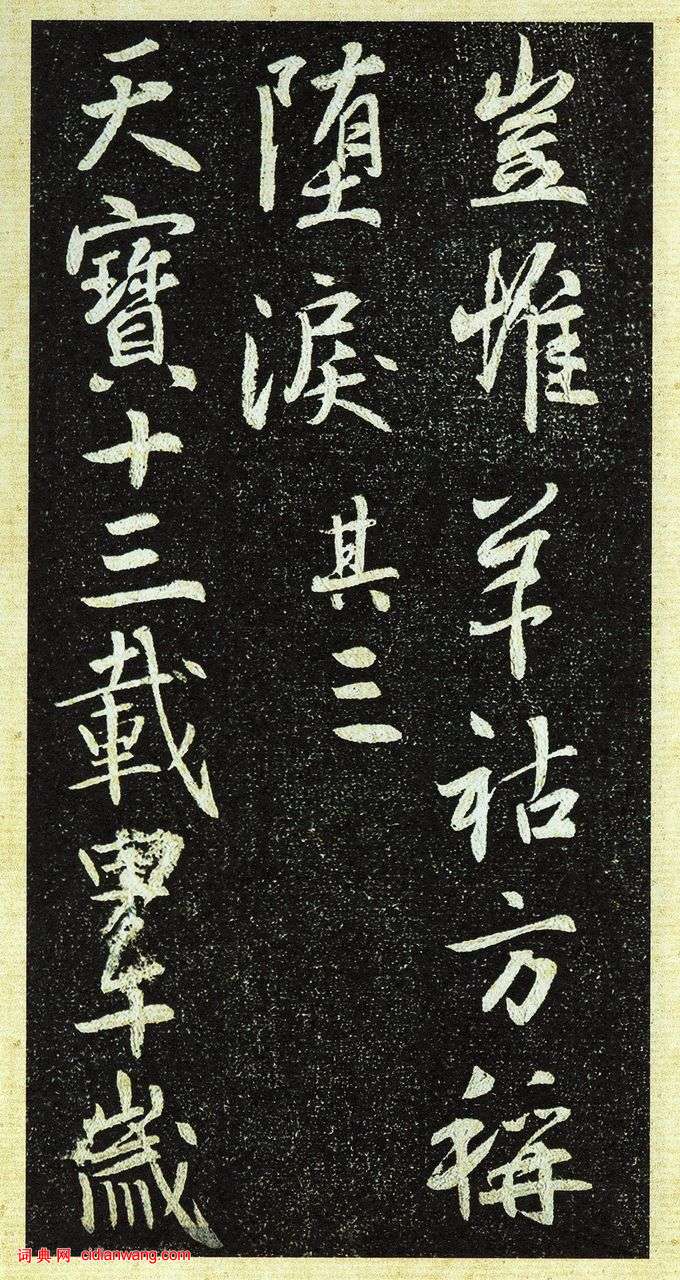 豈惟羊祜方稱
堕淚 其三
天寶十三載甲午歲
词典网 cidianwang.com